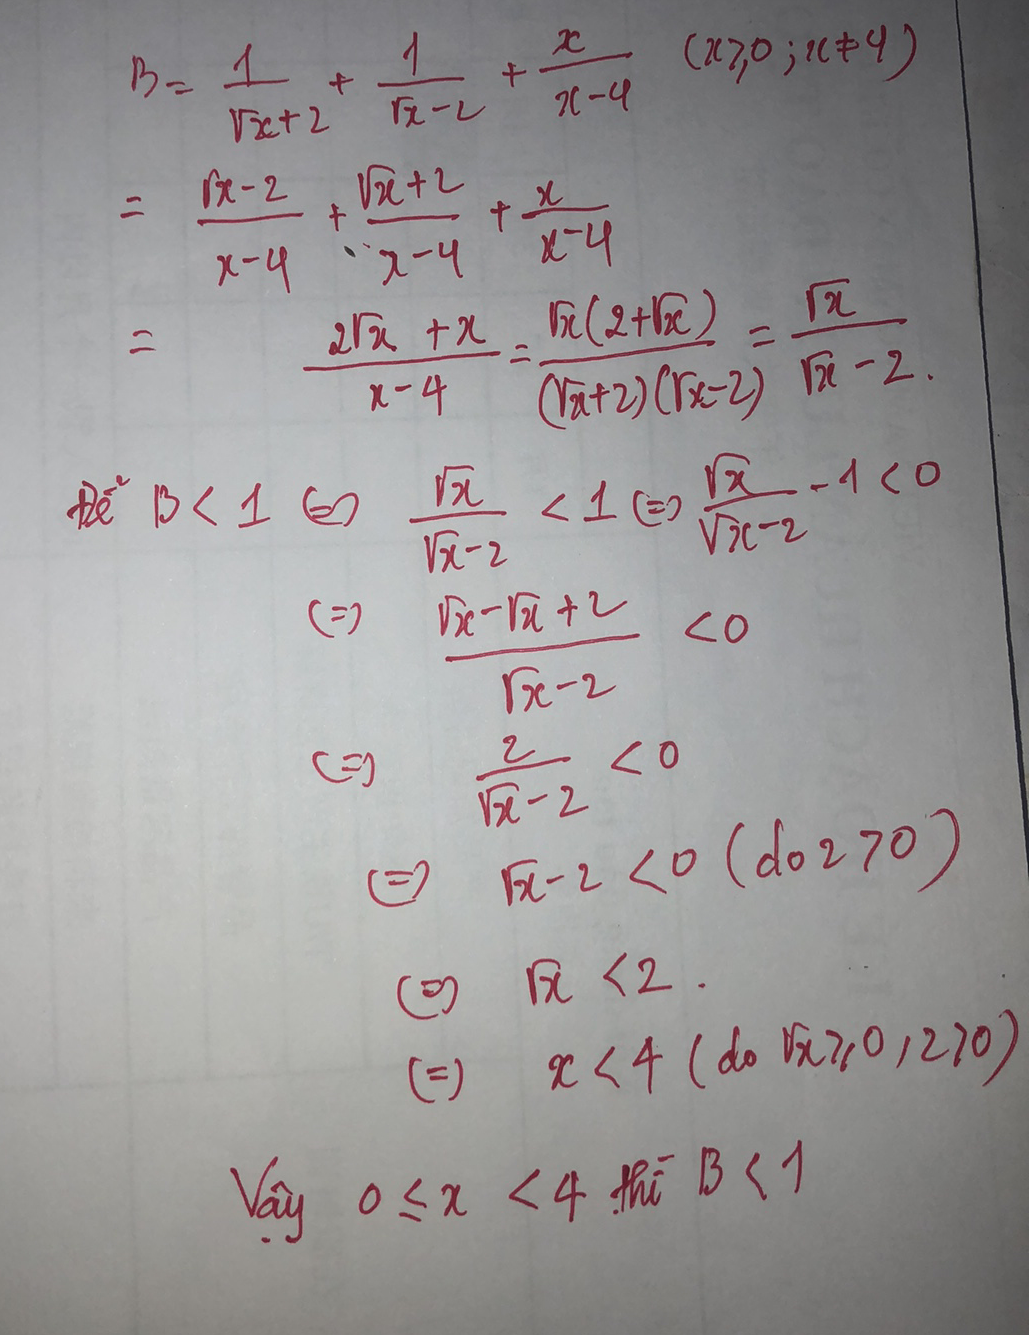 B = 1/(√x+2) + 1/(√x-2) + x/(x-4) (x≥0; x≠4)
= (√x-2)/(x-4) + (√x+2)/(x-4) + x/(x-4)
= (2√x + x)/(x-4) = √x(2+√x)/((√x+2)(√x-2)) = √x/(√x-2).
Để B < 1 (=) √x/(√x-2) < 1 (=) √x/(√x-2) - 1 < 0
(=) (√x-√x+2)/(√x-2) < 0
(=) 2/(√x-2) < 0
(=) √x-2 < 0 (do 2 > 0)
(=) √x < 2.
(=) x < 4 (do √x ≥ 0, 2 > 0)
Vậy 0 ≤ x < 4 thì B < 1